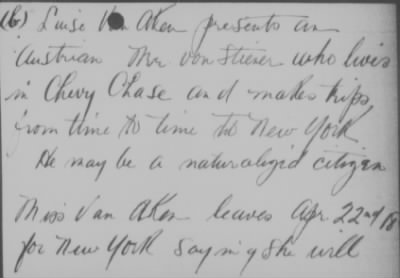 (b) Luise Van Aken presents an
Austrian Mr von Stiener who lives
in Chevy Chase and makes trips
from time to time to New York
He may be a naturalizid citizen
Miss Van Aken leaves Apr. 22nd 18
for New York saying she will